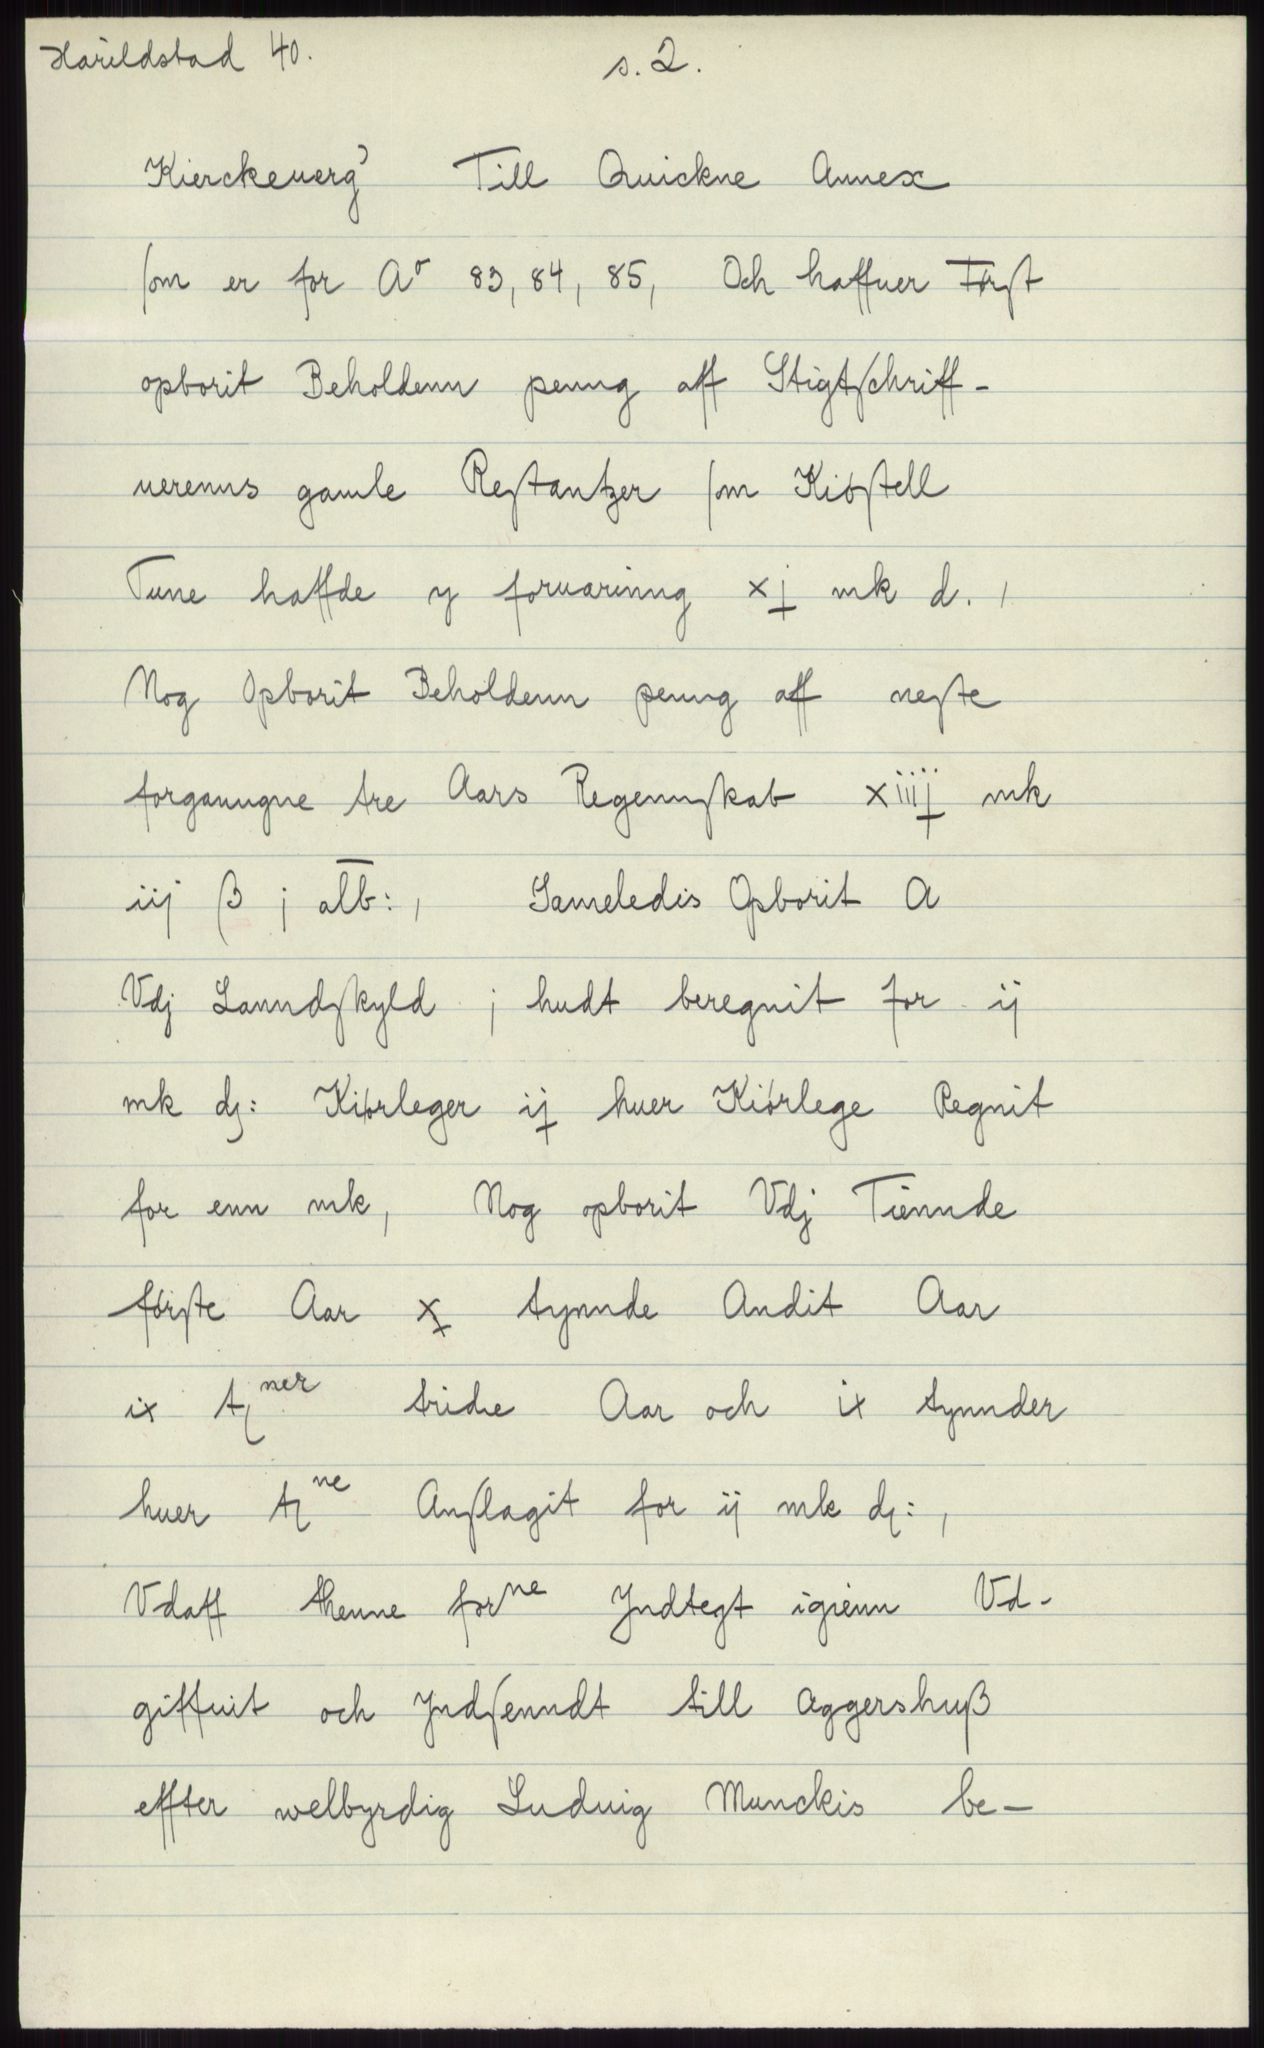 Harildstad 40. s. 2.
Kierckeuerg⁾ Till Quickne Annex
som er for Aº 83, 84, 85, Och haffuer Først
opborit Beholdenn penng aff Stigtschriff-
uerenns gamle Restantzer som Kiøstell
Tune haffde y foruarinng xj mk d. ,
Nog Opborit Beholdenn penng aff neste
forganngne tre Aars Regennskab xiiij mk
iij β j alb: , Sameledis Opborit A
Vdj Lanndskyld j hudt beregnit for ij
mk dj: Kiørleger ij huer Kiørlege Regnit
for enn mk, Nog opborit Vdj Tiennde
første Aar x tynnde Andit Aar
ix tner tridie Aar och ix tynnder
huer tne Anslagit for ij mk dj: ,
Vdaff thenne forne Jndtegt igienn Vd-
giffuit och Jndsenndt till Aggershuß
effter welbyrdig Luduig Munckis be-